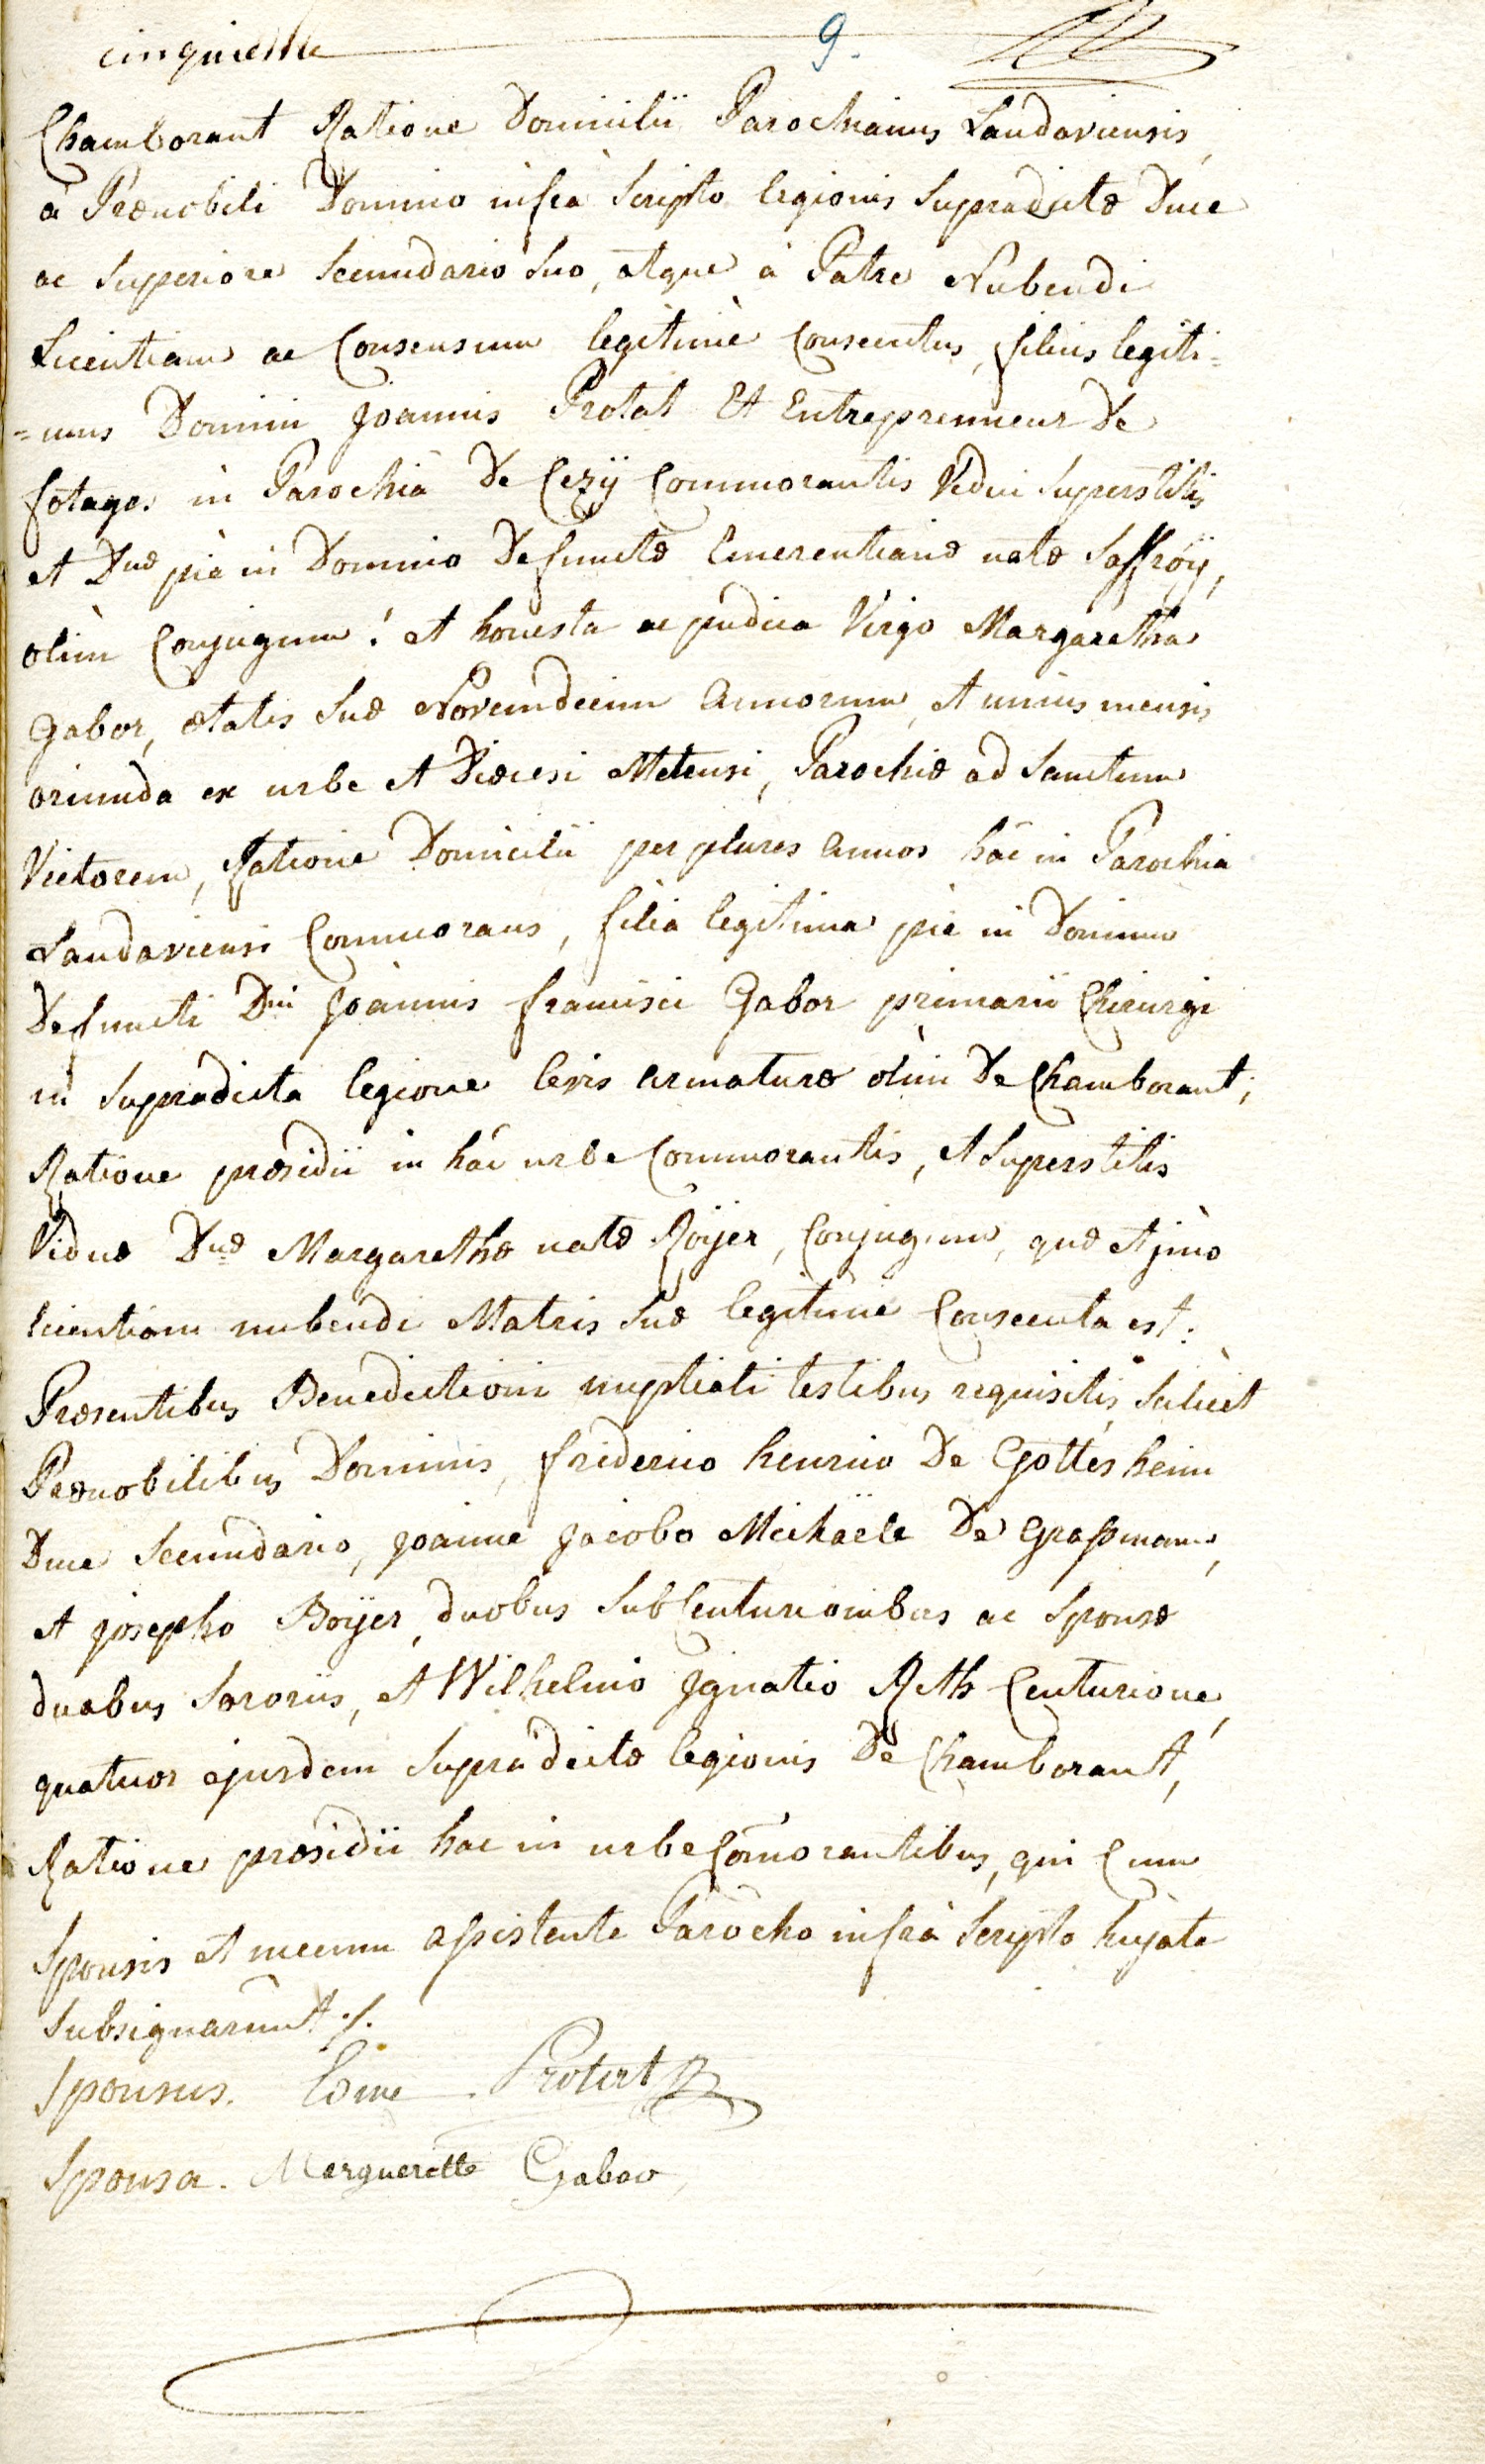 cinquieme 9.
Chamborant Ratione Domicilii Parochianus Landaviensis,
à Prænobili Domino infrà Scripto legionis Supradictæ Duce
ac Superiore Secundario Suo, atque à Patre Nubendi
Licentiam ac Consensum legitimè Consecutus, filius legiti=
=mus Domini Joannis Protat Et Entreprenneur De
fotages in Parochiâ De Cezÿ Commorantis Vidui Superstitis
et Dnæ piè in Domino Defunctæ Emerentianæ natæ Saffroÿ,
olim Conjugum: et honesta ac pudica Virgo Margaretha
Gabor, ætatis Suæ Novemdecim Annorum, et unius mensis
oriunda ex urbe et Diœcesi Metensi, Parochiæ ad Sanctum
Victorem, Ratione Domicilii per plures annos hâc in Parochia
Landaviensi Commorans, filia legitima piè in Domino
Defuncti Dni Joannis francisci Gabor primarii Chirurgi
in Supradicta legione levis armaturæ olim De Chamborant;
Ratione præsidii in hâc urbe Commorantis, et Superstitis
Viduæ Dnæ Margarethæ natæ Roÿer, Conjugum, quæ et jmo
licentiam nubendi Matris Suæ legitime Consecuta est:
Præsentibus Benedictioni nuptiali testibus requisitis, Scilicet
Prænobilibus Dominis, friderico henrico De Gottesheim
Duce Secundario, Joanne Jacobo Michaële De Graßmann,
et josepho Boÿer, duobus SubCenturionibus ac Sponsæ
duobus Sororiis, et Wilhelmo Jgnatio Reth Centurione,
quatuor ejusdem Supradictæ legionis De Chamborant,
Ratione præsidii hac in urbe Com̄orantibus, qui Cum
Sponsis et mecum aßistente Parocho infrà Scripto hujate
Subsignarunt ./.
Sponsus. Côme Protat
Sponsa. Marguerette Gabor